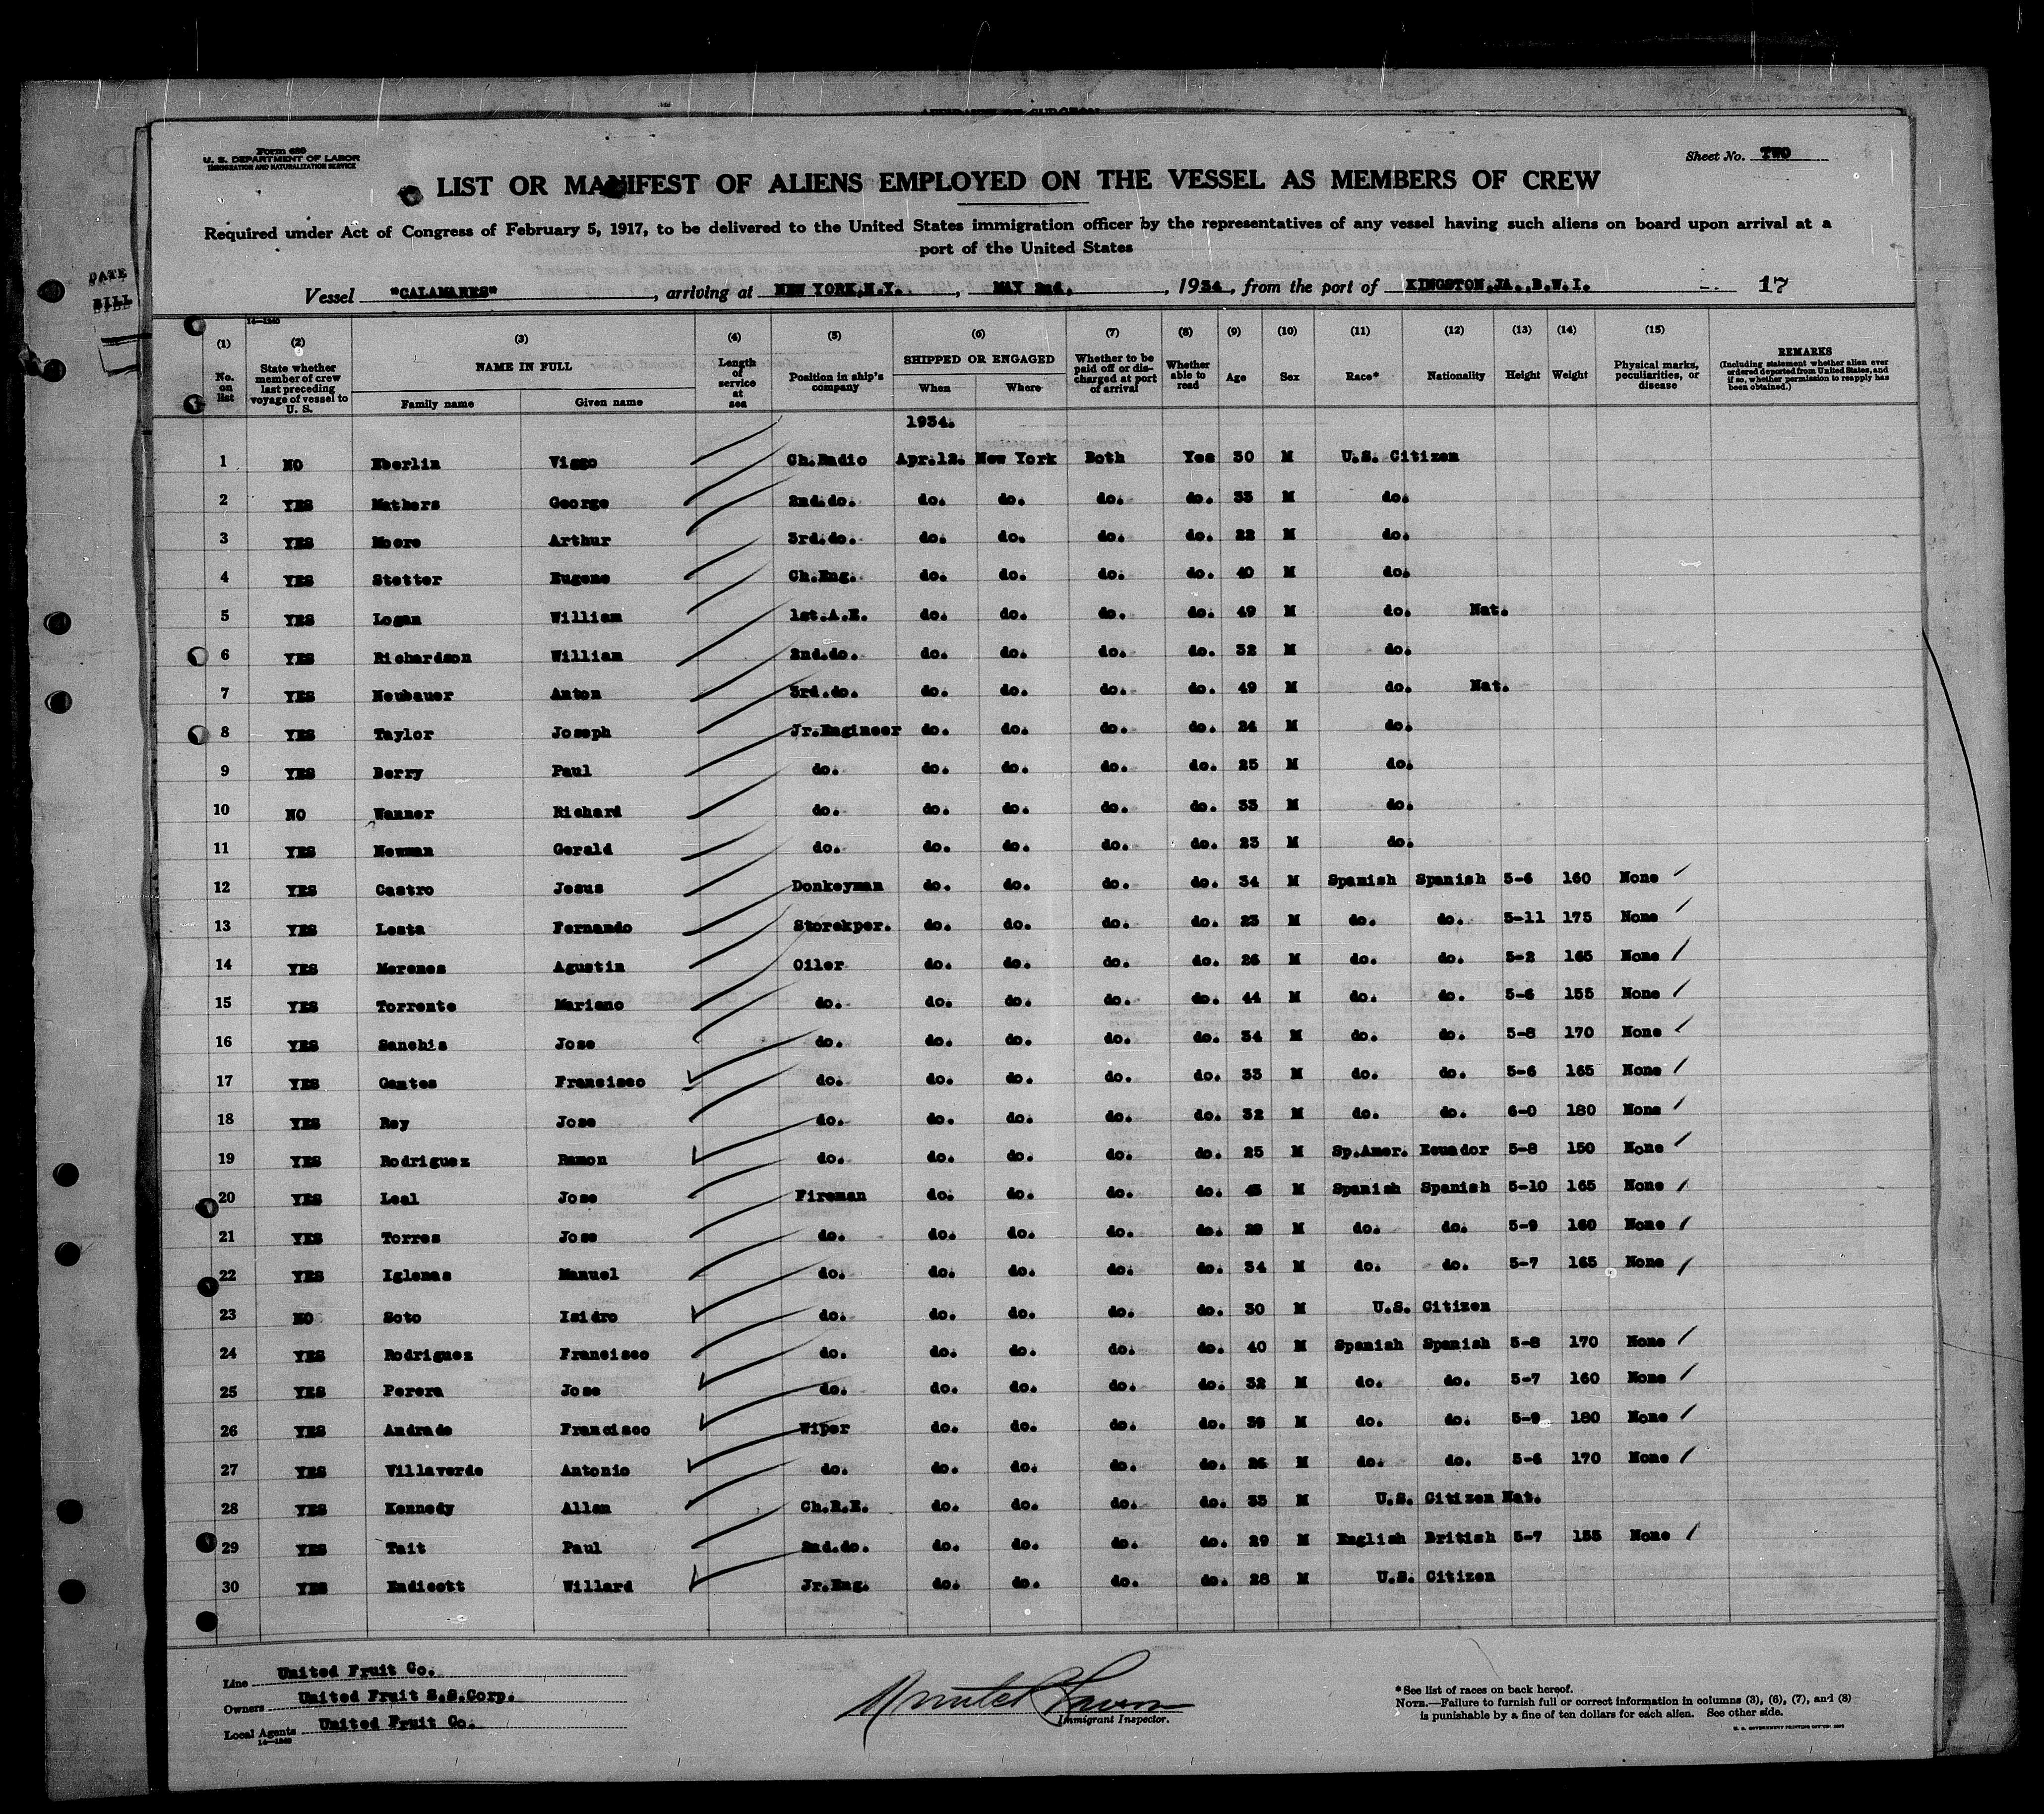 Form 680
U. S. DEPARTMENT OF LABOR
IMMIGRATION AND NATURALIZATION SERVICE
Sheet No. TWO
LIST OR MANIFEST OF ALIENS EMPLOYED ON THE VESSEL AS MEMBERS OF CREW
Required under Act of Congress of February 5, 1917, to be delivered to the United States immigration officer by the representatives of any vessel having such aliens on board upon arrival at a
port of the United States
DATE
BILL
Vessel "CALAMARES", arriving at NEW YORK,N.Y., MAY 2nd., 1934, from the port of KINGSTON.JA.,B.W.I. 17
14—1240
(1) No. on list (2) State whether member of crew last preceding voyage of vessel to U. S. (3) NAME IN FULL Family name Given name (4) Length of service at sea (5) Position in ship's company (6) SHIPPED OR ENGAGED When Where (7) Whether to be paid off or discharged at port of arrival (8) Whether able to read (9) Age (10) Sex (11) Race* (12) Nationality (13) Height (14) Weight (15) Physical marks, peculiarities, or disease REMARKS (Including statement whether alien ever ordered deported from United States, and if so, whether permission to reapply has been obtained.)
1934.
1 NO Eberlin Viggo Ch.Radio Apr.12. New York Both Yes 30 M U.S. Citizen
2 YES Mathers George 2nd.do. do. do. do. do. 33 M do.
3 YES Moore Arthur 3rd.do. do. do. do. do. 22 M do.
4 YES Stetter Eugene Ch.Eng. do. do. do. do. 40 M do.
5 YES Logan William 1st.A.E. do. do. do. do. 49 M do. Nat.
6 YES Richardson William 2nd.do. do. do. do. do. 32 M do.
7 YES Neubauer Anton 3rd.do. do. do. do. do. 49 M do. Nat.
8 YES Taylor Joseph Jr.Engineer do. do. do. do. 24 M do.
9 YES Berry Paul do. do. do. do. do. 25 M do.
10 NO Wanner Richard do. do. do. do. do. 33 M do.
11 YES Newman Gerald do. do. do. do. do. 23 M do.
12 YES Castro Jesus Donkeyman do. do. do. do. 34 M Spanish Spanish 5-6 160 None
13 YES Lesta Fernando Storekper. do. do. do. do. 23 M do. do. 5-11 175 None
14 YES Merenes Agustin Oiler do. do. do. do. 26 M do. do. 5-2 165 None
15 YES Torrente Mariano do. do. do. do. do. 44 M do. do. 5-6 155 None
16 YES Sanchis Jose do. do. do. do. do. 34 M do. do. 5-8 170 None
17 YES Gantes Francisco do. do. do. do. do. 33 M do. do. 5-6 165 None
18 YES Rey Jose do. do. do. do. do. 32 M do. do. 6-0 180 None
19 YES Rodriguez Ramon do. do. do. do. do. 25 M Sp.Amer. Ecuador 5-8 150 None
20 YES Leal Jose Fireman do. do. do. do. M Spanish Spanish 5-10 165 None
21 YES Torres Jose do. do. do. do. do. 29 M do. do. 5-9 160 None
22 YES Iglenas Manuel do. do. do. do. do. 34 M do. do. 5-7 165 None
23 NO Soto Isidro do. do. do. do. do. 30 M U.S. Citizen
24 YES Rodriguez Francisco do. do. do. do. do. 40 M Spanish Spanish 5-8 170 None
25 YES Perera Jose do. do. do. do. do. 32 M do. do. 5-7 160 None
26 YES Andrade Francisco Wiper do. do. do. do. M do. do. 5-9 180 None
27 YES Villaverde Antonio do. do. do. do. do. 26 M do. do. 5-6 170 None
28 YES Kennedy Allan Ch.R.E. do. do. do. do. 33 M U.S. Citizen Nat.
29 YES Tait Paul 2nd.do. do. do. do. do. 29 M English British 5-7 155 None
30 YES Endicott Willard Jr.Eng. do. do. do. do. 28 M U.S. Citizen
Line United Fruit Co.
Owners United Fruit S.S.Corp.
Local Agents United Fruit Co.
14—1240
Immigrant Inspector.
*See list of races on back hereof.
NOTE.—Failure to furnish full or correct information in columns (3), (6), (7), and (8)
is punishable by a fine of ten dollars for each alien. See other side.